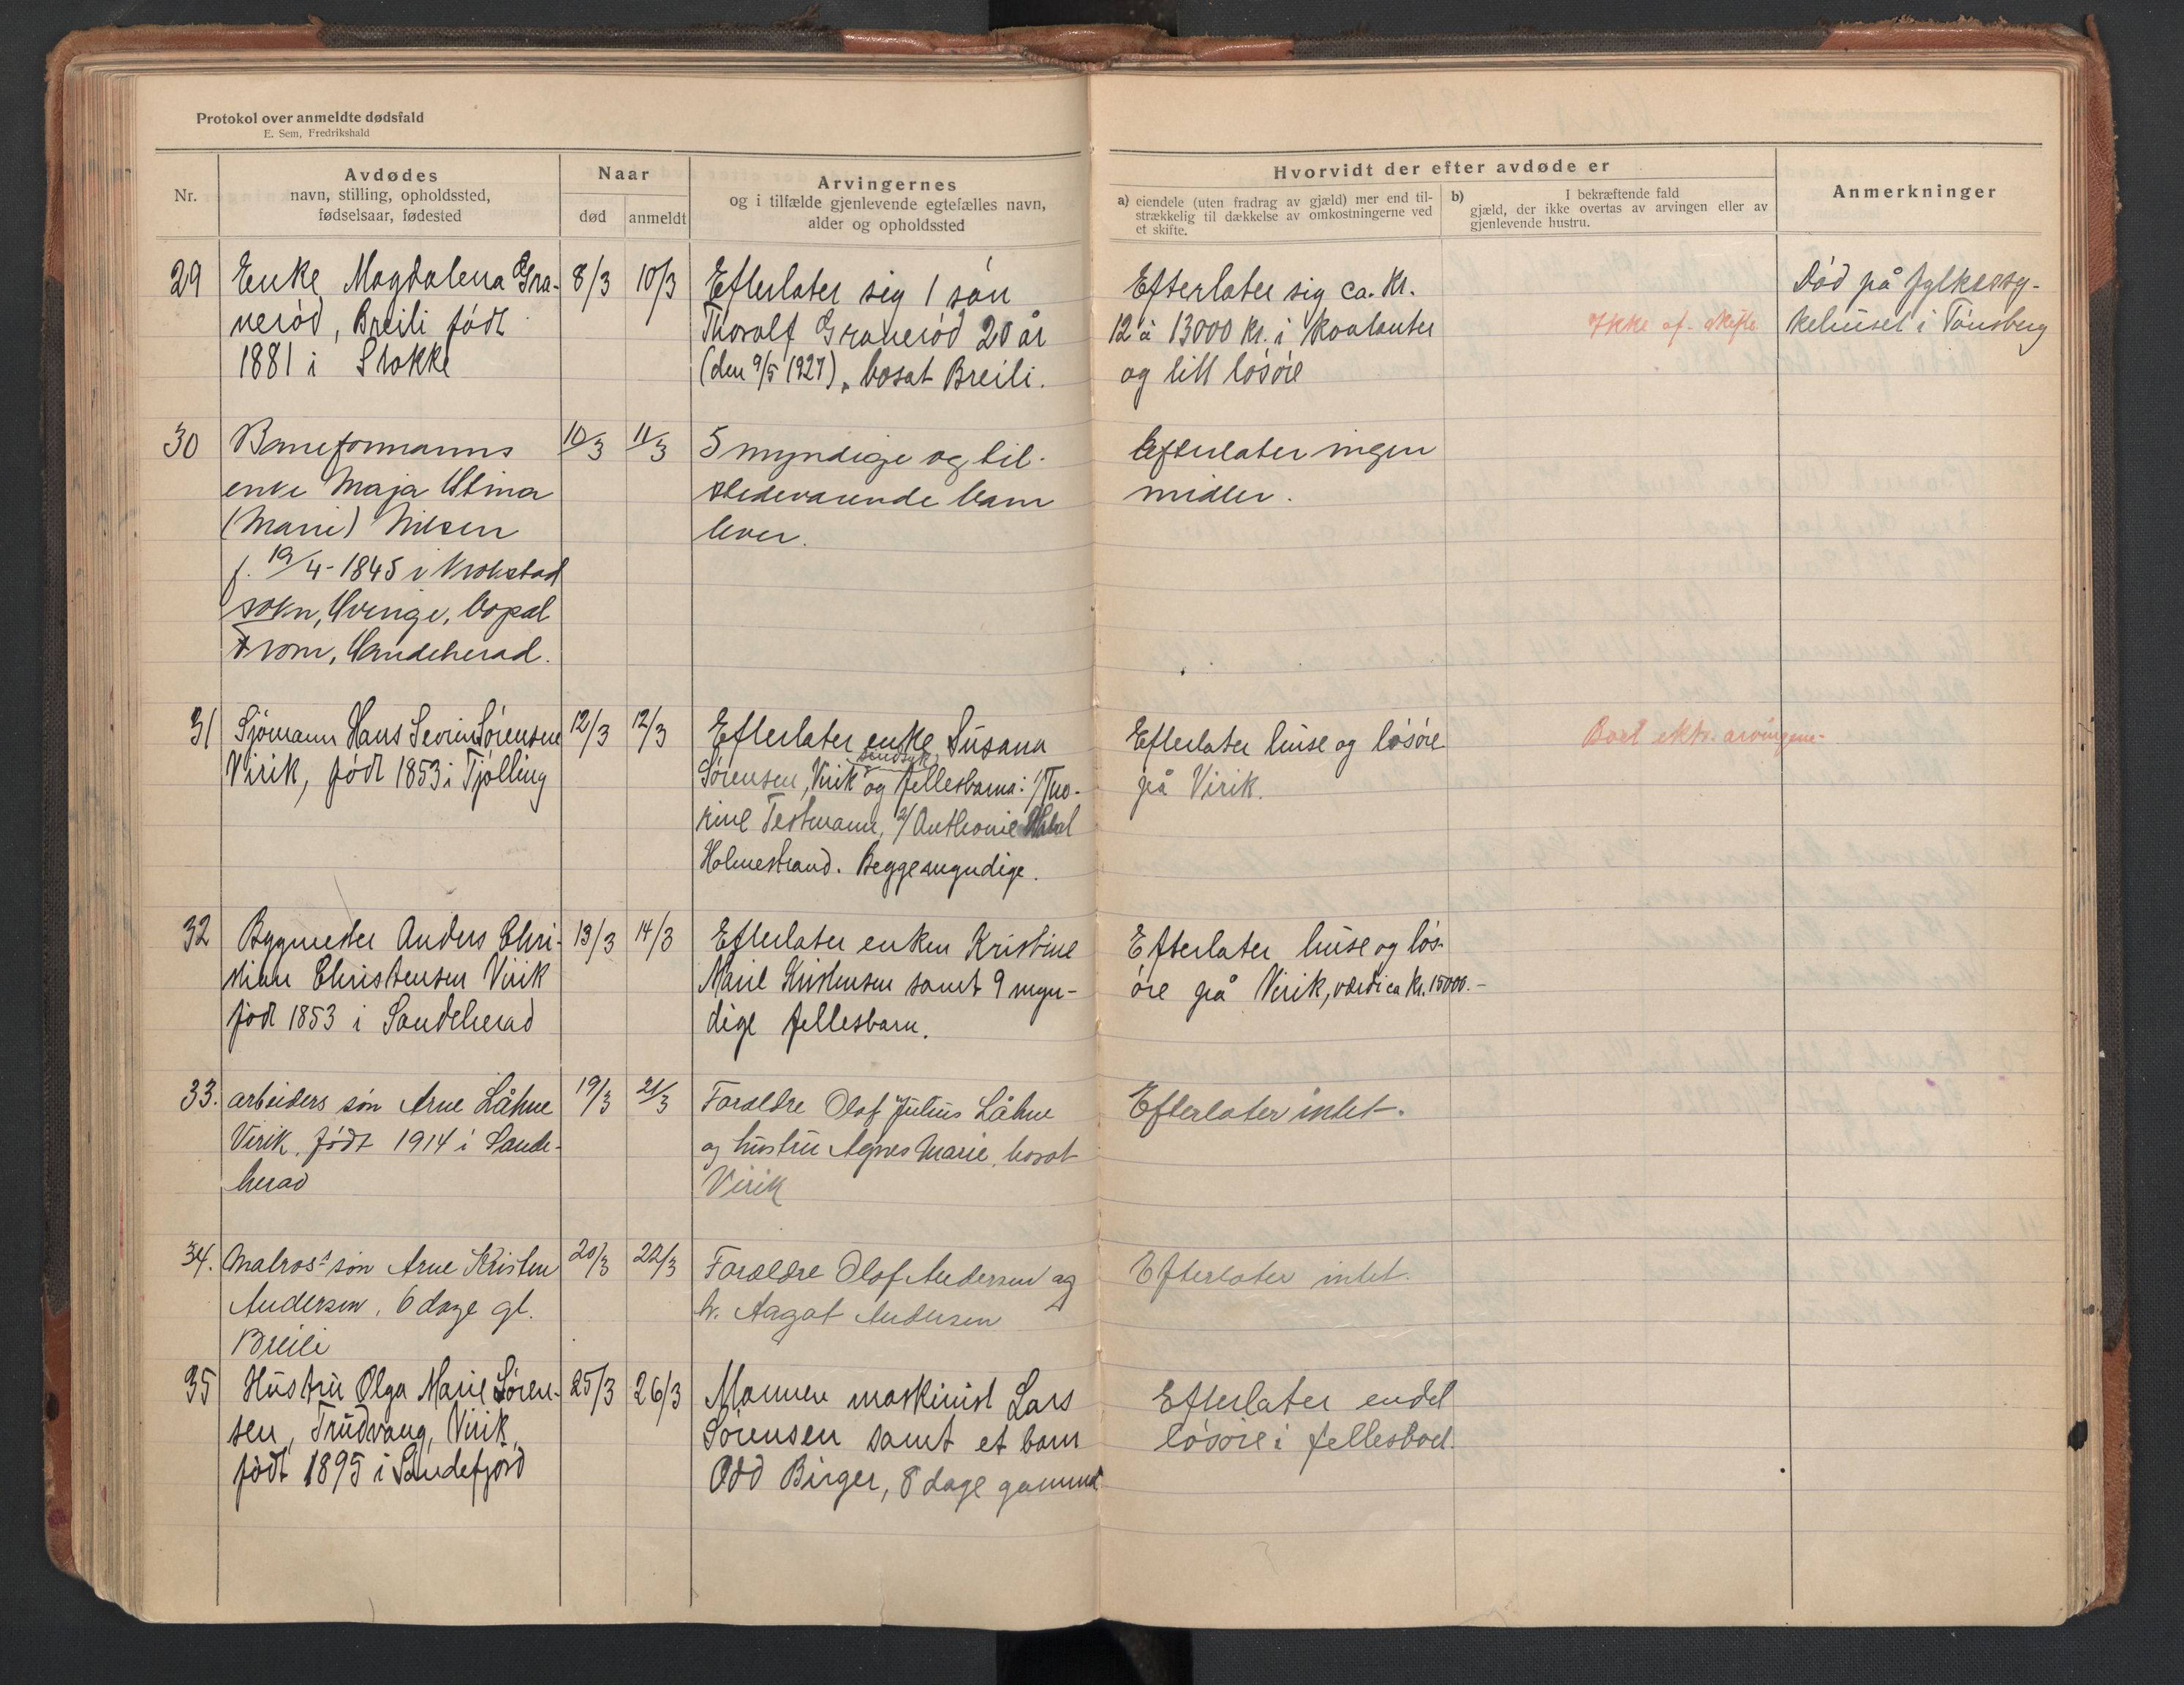 Protokol over anmeldte dødsfald
E. Sem, Fredrikshald
Nr.
Avdødes
navn, stilling, opholdssted,
fødselsaar, fødested
Naar
død
anmeldt
Arvingernes
og i tilfælde gjenlevende egtefælles navn,
alder og opholdssted
Hvorvidt der efter avdøde er
a) eiendele (uten fradrag av gjæld) mer end til-
strækkelig til dækkelse av omkostningerne ved
et skifte.
b) I bekræftende fald
gjæld, der ikke overtas av arvingen eller av
gjenlevende hustru.
Anmerkninger
29
Enke Magdalena Gra-
nerød, Breili født
1881 i Stokke
8/3
10/3
Efterlater sig 1 søn
Thoralf Granerød 20 år
(den 9/5 1927), bosat Breili.
Efterlater sig ca. kr.
12 à 13000 kr. i kontanter
og litt løsøre
Ikke of. skifte
Død på fylkessy-
kehuset i Tønsberg
30
Baneformanns
enke Maja Stina
(Marie) Nilsen
f. 19/4-1845 i Krokstad
sokn, Sverige, bopæl
Fvom, Sandeherad.
10/3
11/3
5 myndige og til-
stedevarende barn
lever.
Efterlater ingen
midler.
31
Sjømann Hans Severin Sørensen
Virik, født 1853 i Tjølling
12/3
12/3
Efterlater enke Susana
sindsyk
Sørensen, Virik og fellesbarna: 1/
Testmann, 2/ Anthonie
Holmestrand. Begge myndige.
Efterlater huse og løsøre
på Virik.
32
Bygmester Anders Chri-
stian Christensen Virik
født 1853 i Sandeherad
13/3
14/3
Efterlater enken Kristine
Marie Kristensen samt 9 myn-
dige fellesbarn.
Efterlater huse og løs-
øre på Virik, værdi ca kr. 15000.-
33.
arbeiders søn Arne Låhne
Virik, født 1914 i Sande-
herad
19/3
21/3
Forældre Olaf Julius Låhne
og hustru Agnes Marie, bosat
Virik
Efterlater intet.
34.
Matros' søn Arne Kristen
Andersen, 6 dage gl.
Breili
20/3
22/3
Forældre Olaf Andersen og
h. Aagot Andersen
Efterlater intet.
35
Hustru Olga Marie Søren-
sen, Trudvang, Virik,
født 1895 i Sandefjord
25/3
26/3
Mannen maskinist Lars
Sørensen samt et barn
Odd Birger, 8 dage gammel
Efterlater endel
løsøre i fellesboet.